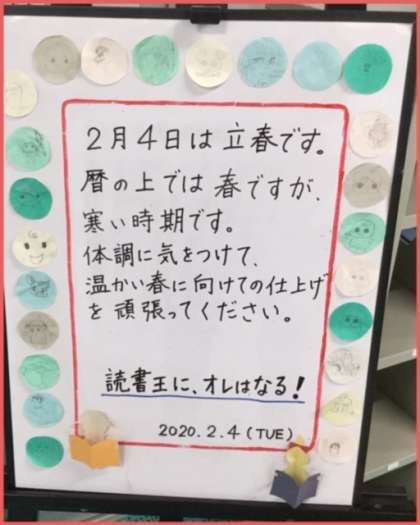 2月4日は立春です。
暦の上では春ですが、
寒い時期です。
体調に気をつけて、
温かい春に向けての仕上げ
を頑張ってください。
読書王に、オレはなる!
2020.2.4(TUE)